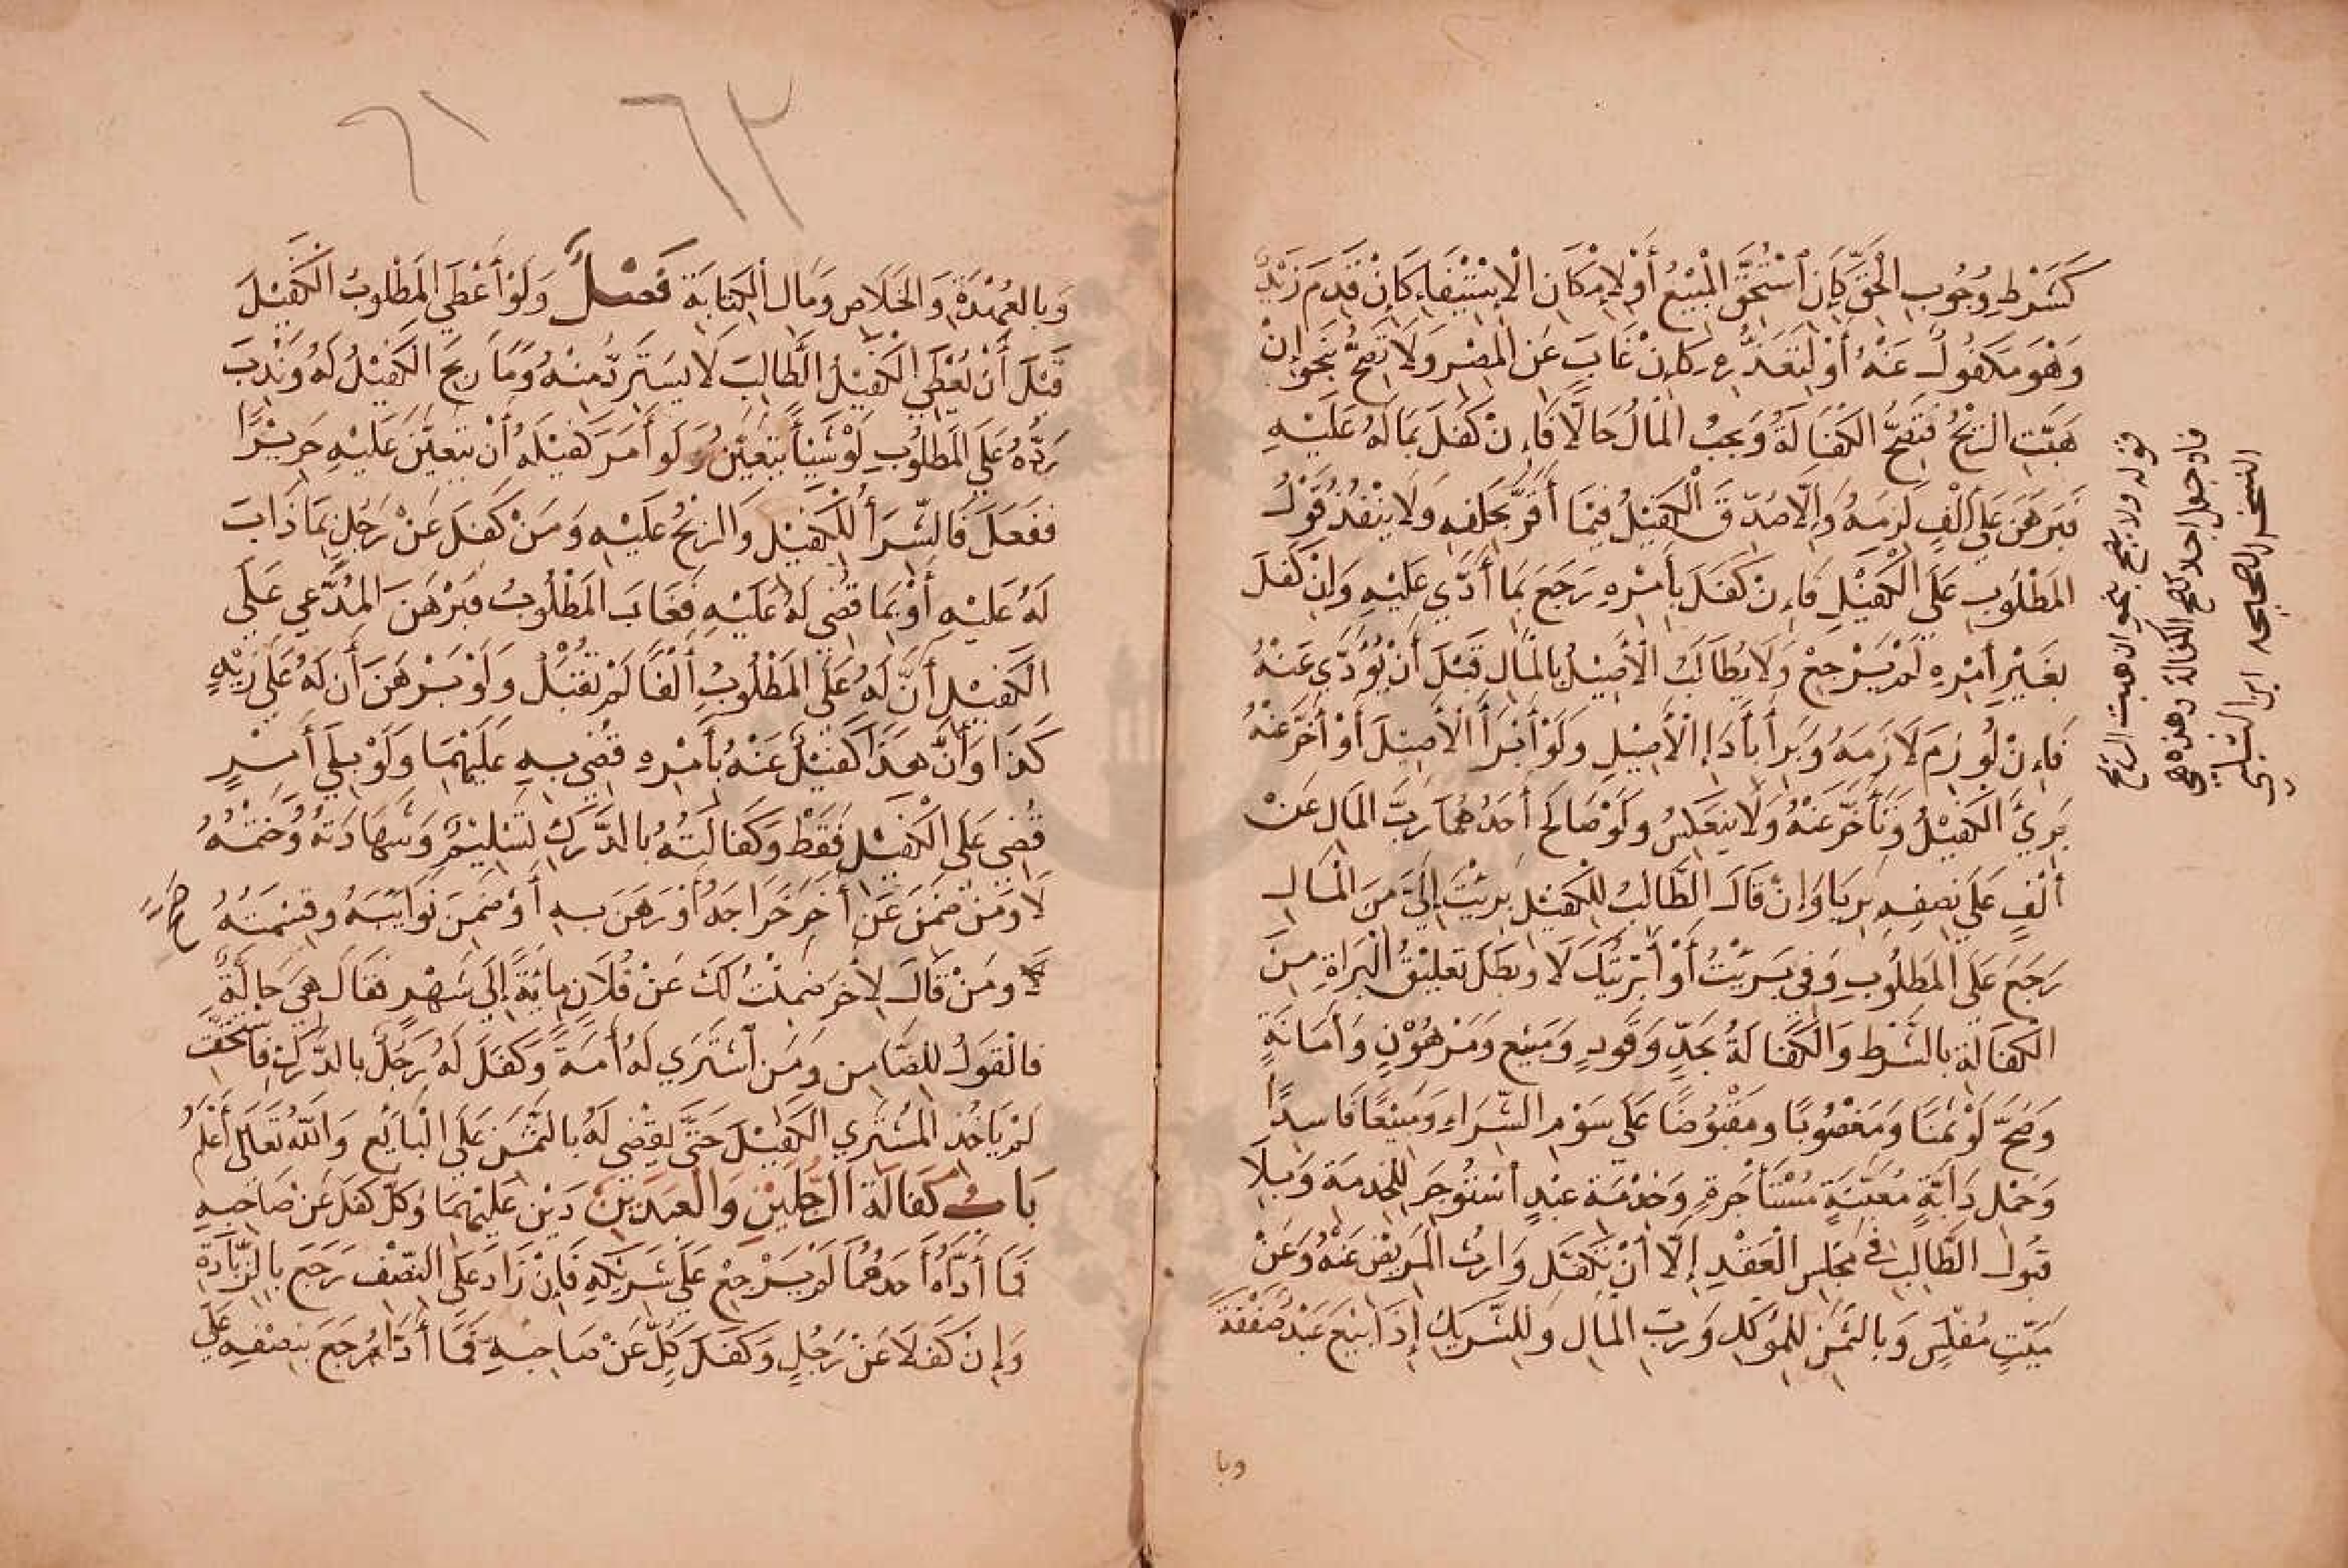 كَشَرْطِ وُجُوبِ الْحَقِّ كَإِنِ ٱسْتُحِقَّ الْمَبِيْعُ أَوْ لِإِمْكَانِ الْاِسْتِيْفَاءِ كَإِنْ قَدِمَ زَيْدٌ
وَهْوَ مَكْفُولٌ عَنْهُ أَوْ لِتَعَذُّرِهِ كَإِنْ غَابَ عَنِ الْمِصْرِ وَلَا تَصِحُّ بِنَحْوِ إِنْ
هَبَّتِ الرِّيْحُ فَتَصِحُّ الْكَفَالَةُ وَيَجِبُ الْمَالُ حَالًّا فَإِنْ كَفَلَ بِمَا لَهُ عَلَيْهِ
فَبَرْهَنَ عَلَى أَلْفٍ لَزِمَهُ وَإِلَّا صُدِّقَ الْكَفِيْلُ فِيْمَا أَقَرَّ بِحَلِفِهِ وَلَا يَنْفُذُ قَوْلُ
الْمَطْلُوبِ عَلَى الْكَفِيْلِ فَإِنْ كَفَلَ بِأَمْرِهِ رَجَعَ بِمَا أَدَّى عَلَيْهِ وَإِنْ كَفَلَ
بِغَيْرِ أَمْرِهِ لَمْ يَرْجِعْ وَلَا يُطَالَبُ الْأَصِيْلُ بِالْمَالِ قَبْلَ أَنْ يُؤَدِّيَ عَنْهُ
فَإِنْ لُوزِمَ لَازَمَهُ وَبَرِأَ بِأَدَاءِ الْأَصِيْلِ وَلَوْ أَبْرَأَ الْأَصِيْلَ أَوْ أَخَّرَ عَنْهُ
بَرِئَ الْكَفِيْلُ وَتَأَخَّرَ عَنْهُ وَلَا يَنْعَكِسُ وَلَوْ صَالَحَ أَحَدُهُمَا رَبَّ الْمَالِ عَنْ
أَلْفٍ عَلَى نِصْفِهِ بَرِيَا وَإِنْ قَالَ الطَّالِبُ لِلْكَفِيْلِ بَرِئْتَ إِلَيَّ مِنَ الْمَالِ
رَجَعَ عَلَى الْمَطْلُوبِ وَفِي بَرِئْتَ أَوْ أَبْرَئْتُكَ لَا وَبَطَلَ تَعْلِيْقُ الْبَرَاةِ مِنَ
الْكَفَالَةِ بِالشَّرْطِ وَالْكَفَالَةُ بِحَدٍّ وَقَوَدٍ وَمَبِيْعٍ وَمَرْهُوْنٍ وَأَمَانَةٍ
وَصَحَّ لَوْ ثَمَنًا وَمَغْصُوبًا وَمَقْبُوضًا عَلَى سَوْمِ الشِّرَاءِ وَمَبِيْعًا فَاسِدًا
وَحَمْلِ دَابَّةٍ مُعَيَّنَةٍ مُسْتَأْجَرَةٍ وَخِدْمَةِ عَبْدٍ اسْتُؤْجِرَ لِلْخِدْمَةِ وَبِلَا
قَبُولِ الطَّالِبِ فِي مَجْلِسِ الْعَقْدِ إِلَّا أَنْ تَكَفَّلَ وَارِثُ الْمَرِيْضِ عَنْهُ وَعَنْ
مَيِّتٍ مُفْلِسٍ وَبِالثَّمَنِ لِلْمُؤَكِّلِ وَرَبِّ الْمَالِ وَلِلشَّرِيْكِ إِذَا بِيْعَ عَبْدٌ صَفْقَةً
وبا
قوله ولا يصح بنحو ان هبت الريح
فان جعل اجلا تصح الكفالة وهذه هي
النسخة الصحيحة ابن الشلبي
٦٢
٦١
وَبِالْعُهْدَةِ وَالْخَلَاصِ وَمَالِ الْكِتَابَةِ فَصْلٌ وَلَوْ أَعْطَى الْمَطْلُوبُ الْكَفِيْلَ
قَبْلَ أَنْ يُعْطِيَ الْكَفِيْلُ الطَّالِبَ لَا يَسْتَرِدُّ مِنْهُ وَمَا رَبِحَ الْكَفِيْلُ لَهُ وَنُدِبَ
رَدُّهُ عَلَى الْمَطْلُوبِ لَوْ شَيْئًا يَتَعَيَّنُ وَلَو أَمَرَ كَفِيْلَهُ أَنْ يَتَعَيَّنَ عَلَيْهِ حَرِيْرًا
فَفَعَلَ فَالشِّرَأُ لِلْكَفِيْلِ وَالرِّبْحُ عَلَيْهِ وَمَنْ كَفَلَ عَنْ رَجُلٍ بِمَا ذَابَ
لَهُ عَلَيْهِ أَوْ بِمَا قُضِيَ لَهُ عَلَيْهِ فَغَابَ الْمَطْلُوبُ فَبَرْهَنَ الْمُدَّعِي عَلَى
الْكَفِيْلِ أَنَّ لَهُ عَلَى الْمَطْلُوبِ أَلْفًا لَمْ تُقْبَلْ وَلَوْ بَرْهَنَ أَن لَهُ عَلَى زَيْدٍ
كَذَا وَأَنَّ هَذَا كَفِيْلٌ عَنْهُ بِأَمْرِهِ قُضِيَ بِهِ عَلَيْهِمَا وَلَوْ بِلَى أَمْرٍ
قُضِيَ عَلَى الْكَفِيْلِ فَقَطْ وَكَفَالَتُهُ بِالدَّرَكِ تَسْلِيْمٌ وَشَهَادَتُهُ وَخَتْمُهُ
لَا وَمَنْ ضَمِنَ عَنْ أَخَرَ خَرَاجَهُ أَوْ رَهَنَ بِهِ أَوْ ضَمِنَ نَوَايِبَهُ وَقِسْمَتَهُ صح
وَمَنْ قَالَ لِأَخَرَ ضَمِنْتُ لَكَ عَنْ فُلَانٍ مِائَةً إِلَى شَهْرٍ فَقَالَ هِيَ حَالَّةٌ
فَالْقَوْلُ لِلضَّامِنِ وَمَنِ ٱشْتَرَى لَهُ أَمَةً وَكَفَلَ لَهُ رَجُلٌ بِالدَّرَكِ فَاسْتُحِقَّتْ
لَمْ يَاخُذِ الْمُشْتَرِي الْكَفِيْلَ حَتَّى يُقْضَى لَهُ بِالثَّمَنِ عَلَى الْبَائِعِ وَاللَّهُ تَعَالَى أَعْلَمُ
بَابُ كَفَالَةِ الرَّجُلَيْنِ وَالْعَبْدَيْنِ دَيْنٌ عَلَيْهِمَا وَكُلٌّ كَفَلَ عَنْ صَاحِبِهِ
فَمَا أَدَّاهُ أَحَدُهُمَا لَمْ يَرْجِعْ عَلَى شَرِيْكِهِ فَإِنْ زَادَ عَلَى النِّصْفِ رَجَعَ بِالزِّيَادَةِ
وَإِنْ كَفَلَا عَنْ رَجُلٍ وَكَفَلَ كُلٌّ عَنْ صَاحِبِهِ فَمَا أَدَّاهُ رَجَعَ بِنِصْفِهِ عَلَى